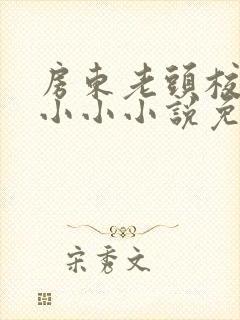 房東老頭
小小小說免
宋秀文